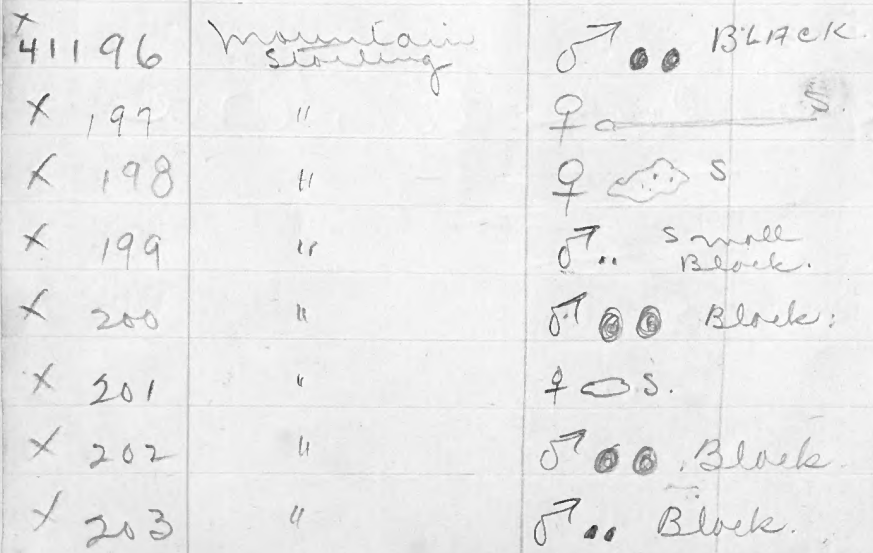 x 41196 Mountain Starling ♂ BLACK.
x 197 " ♀ S.
x 198 " ♀ S
x 199 " ♂ Small Black.
x 200 " ♂ Black.
x 201 " ♀ S.
x 202 " ♂ Black.
x 203 " ♂ Black.